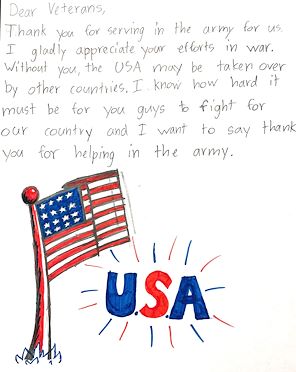 Dear Veterans,
Thank you for serving in the army for us.
I gladly appreciate your efforts in war.
Without you, the USA may be taken over
by other countries. I know how hard it
must be for you guys to fight for
our country and I want to say thank
you for helping in the army.
U.S.A